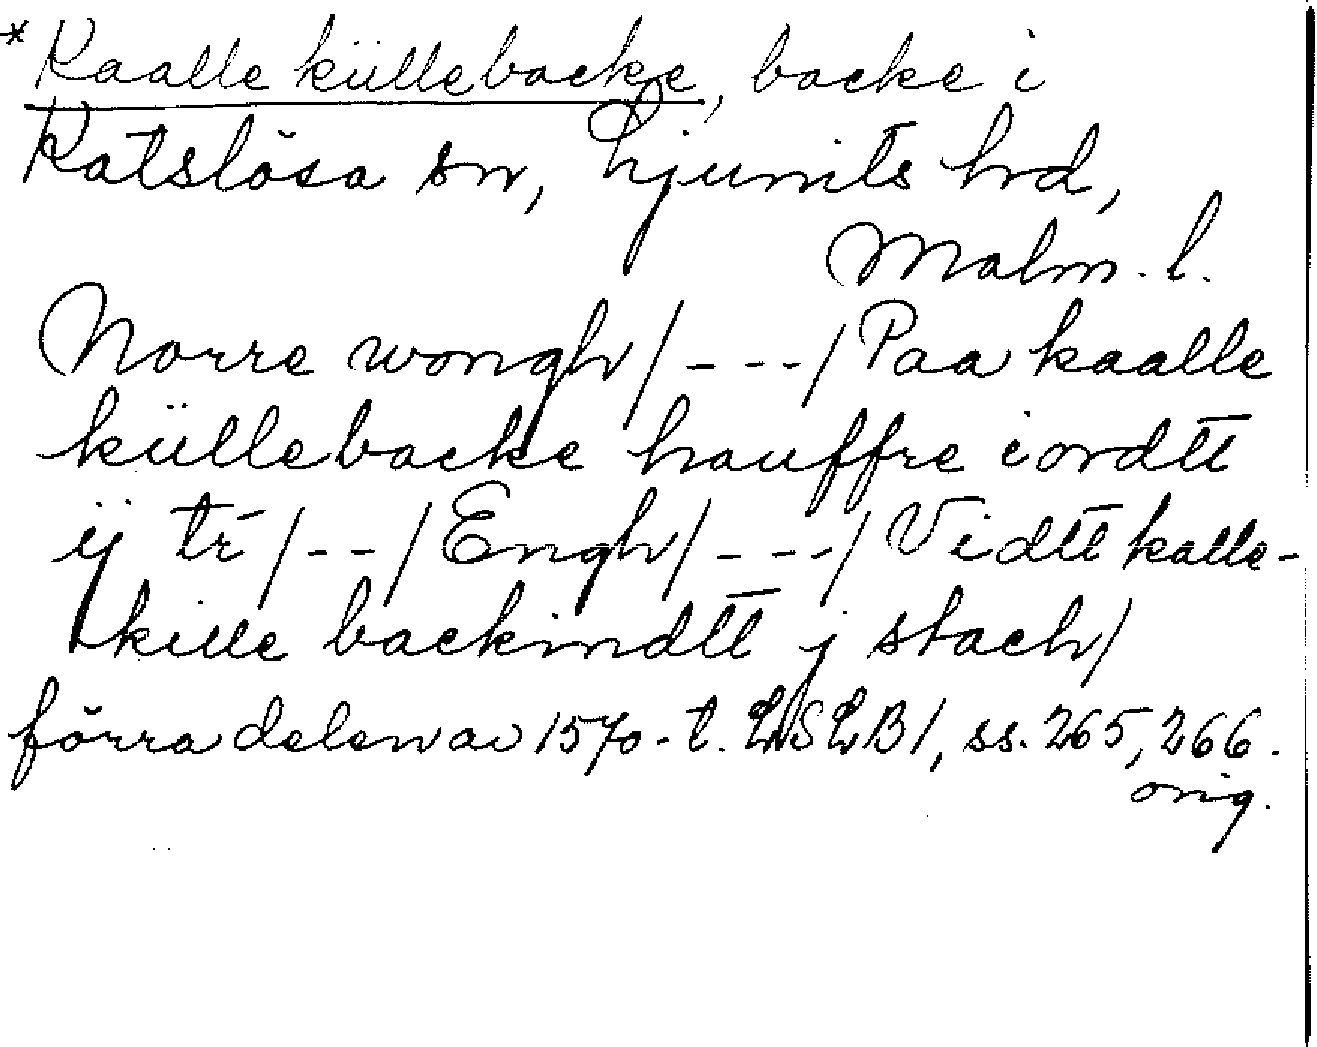 *Kaalle küllebacke, backe i
Katslösa sn, Ljunits hrd,
Malm. l.
Norre wongh/---/Paa kaalle
küllebacke hauffre iordtt
ij tr/--/Engh/---/Vidtt kalle-
kille backindtt j stach/
förra delen av 1570-t. LSLB1, ss. 265, 266.
orig.